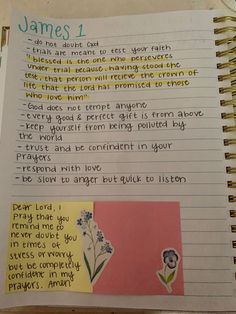 James 1
- do not doubt God
- trials are meant to test your faith
- "blessed is the one who perseveres
under trial because, having stood the
test, that person will recieve the crown of
life that the Lord has promised to those
who love him"
- God does not tempt anyone
- every good & perfect gift is from above
- keep yourself from being polluted by
the world
- trust and be confident in your
prayers
- respond with love
- be slow to anger but quick to listen
Dear Lord, I
pray that you
remind me to
never doubt you
in times of
stress or worry
but be completely
confident in my
prayers. Amen